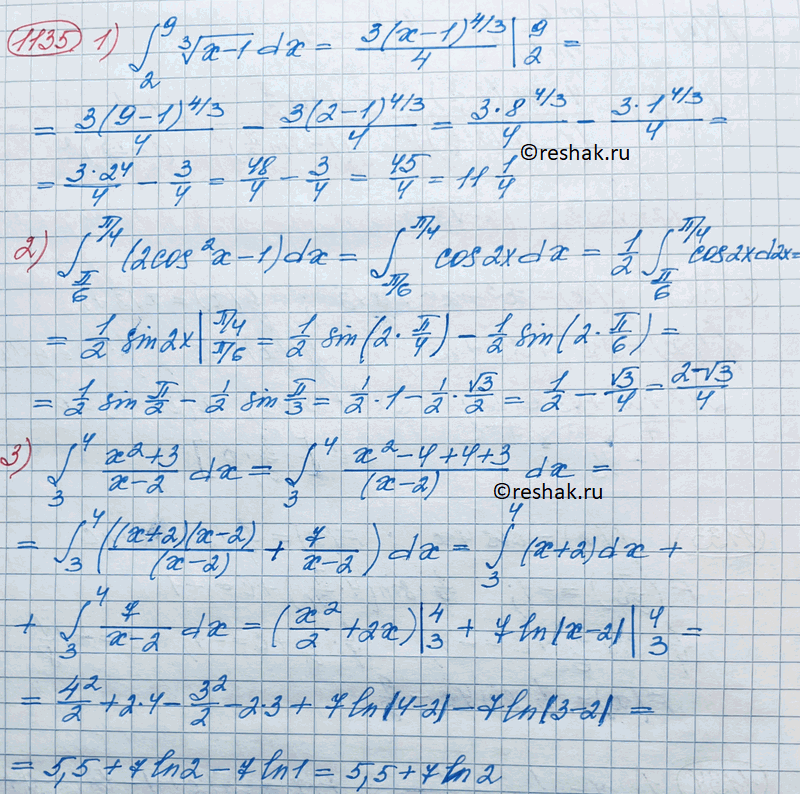 1135 1) ∫₂⁹ ∛(x-1) dx = 3(x-1)^(4/3)/4 |₂⁹ =
= 3(9-1)^(4/3)/4 - 3(2-1)^(4/3)/4 = 3·8^(4/3)/4 - 3·1^(4/3)/4 =
©reshak.ru
= 3·2⁴/4 - 3/4 = 48/4 - 3/4 = 45/4 = 11 1/4
2) ∫_(π/6)^(π/4) (2cos²x-1)dx = ∫_(π/6)^(π/4) cos2x dx = 1/2 ∫_(π/6)^(π/4) cos2x d2x =
= 1/2 sin2x |_(π/6)^(π/4) = 1/2 sin(2·π/4) - 1/2 sin(2·π/6) =
= 1/2 sin π/2 - 1/2 sin π/3 = 1/2·1 - 1/2·√3/2 = 1/2 - √3/4 = (2-√3)/4
3) ∫₃⁴ (x²+3)/(x-2) dx = ∫₃⁴ (x²-4+4+3)/(x-2) dx =
©reshak.ru
= ∫₃⁴ (((x+2)(x-2))/(x-2) + 7/(x-2)) dx = ∫₃⁴ (x+2)dx +
+ ∫₃⁴ 7/(x-2) dx = (x²/2 + 2x)|₃⁴ + 7ln|x-2| |₃⁴ =
= 4²/2 + 2·4 - 3²/2 - 2·3 + 7ln|4-2| - 7ln|3-2| =
= 5,5 + 7ln2 - 7ln1 = 5,5 + 7ln2